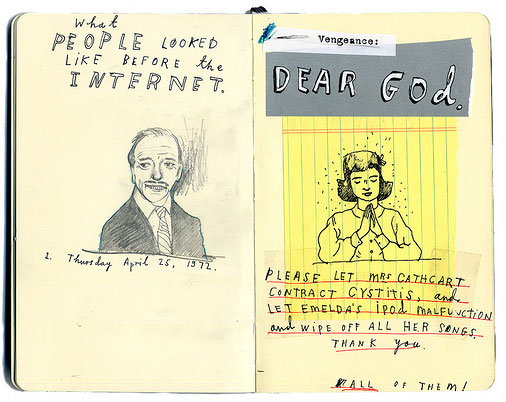 What
PEOPLE LOOKED
LIKE BEFORE the
INTERNET.
1. Thursday April 25, 1972.
Vengeance:
DEAR GOD.
PLEASE LET MRS CATHCART
CONTRACT CYSTITIS, and
LET EMELDA'S iPOD MALFUNCTION
and WIPE OFF ALL HER SONGS.
THANK you.
ALL OF THEM!